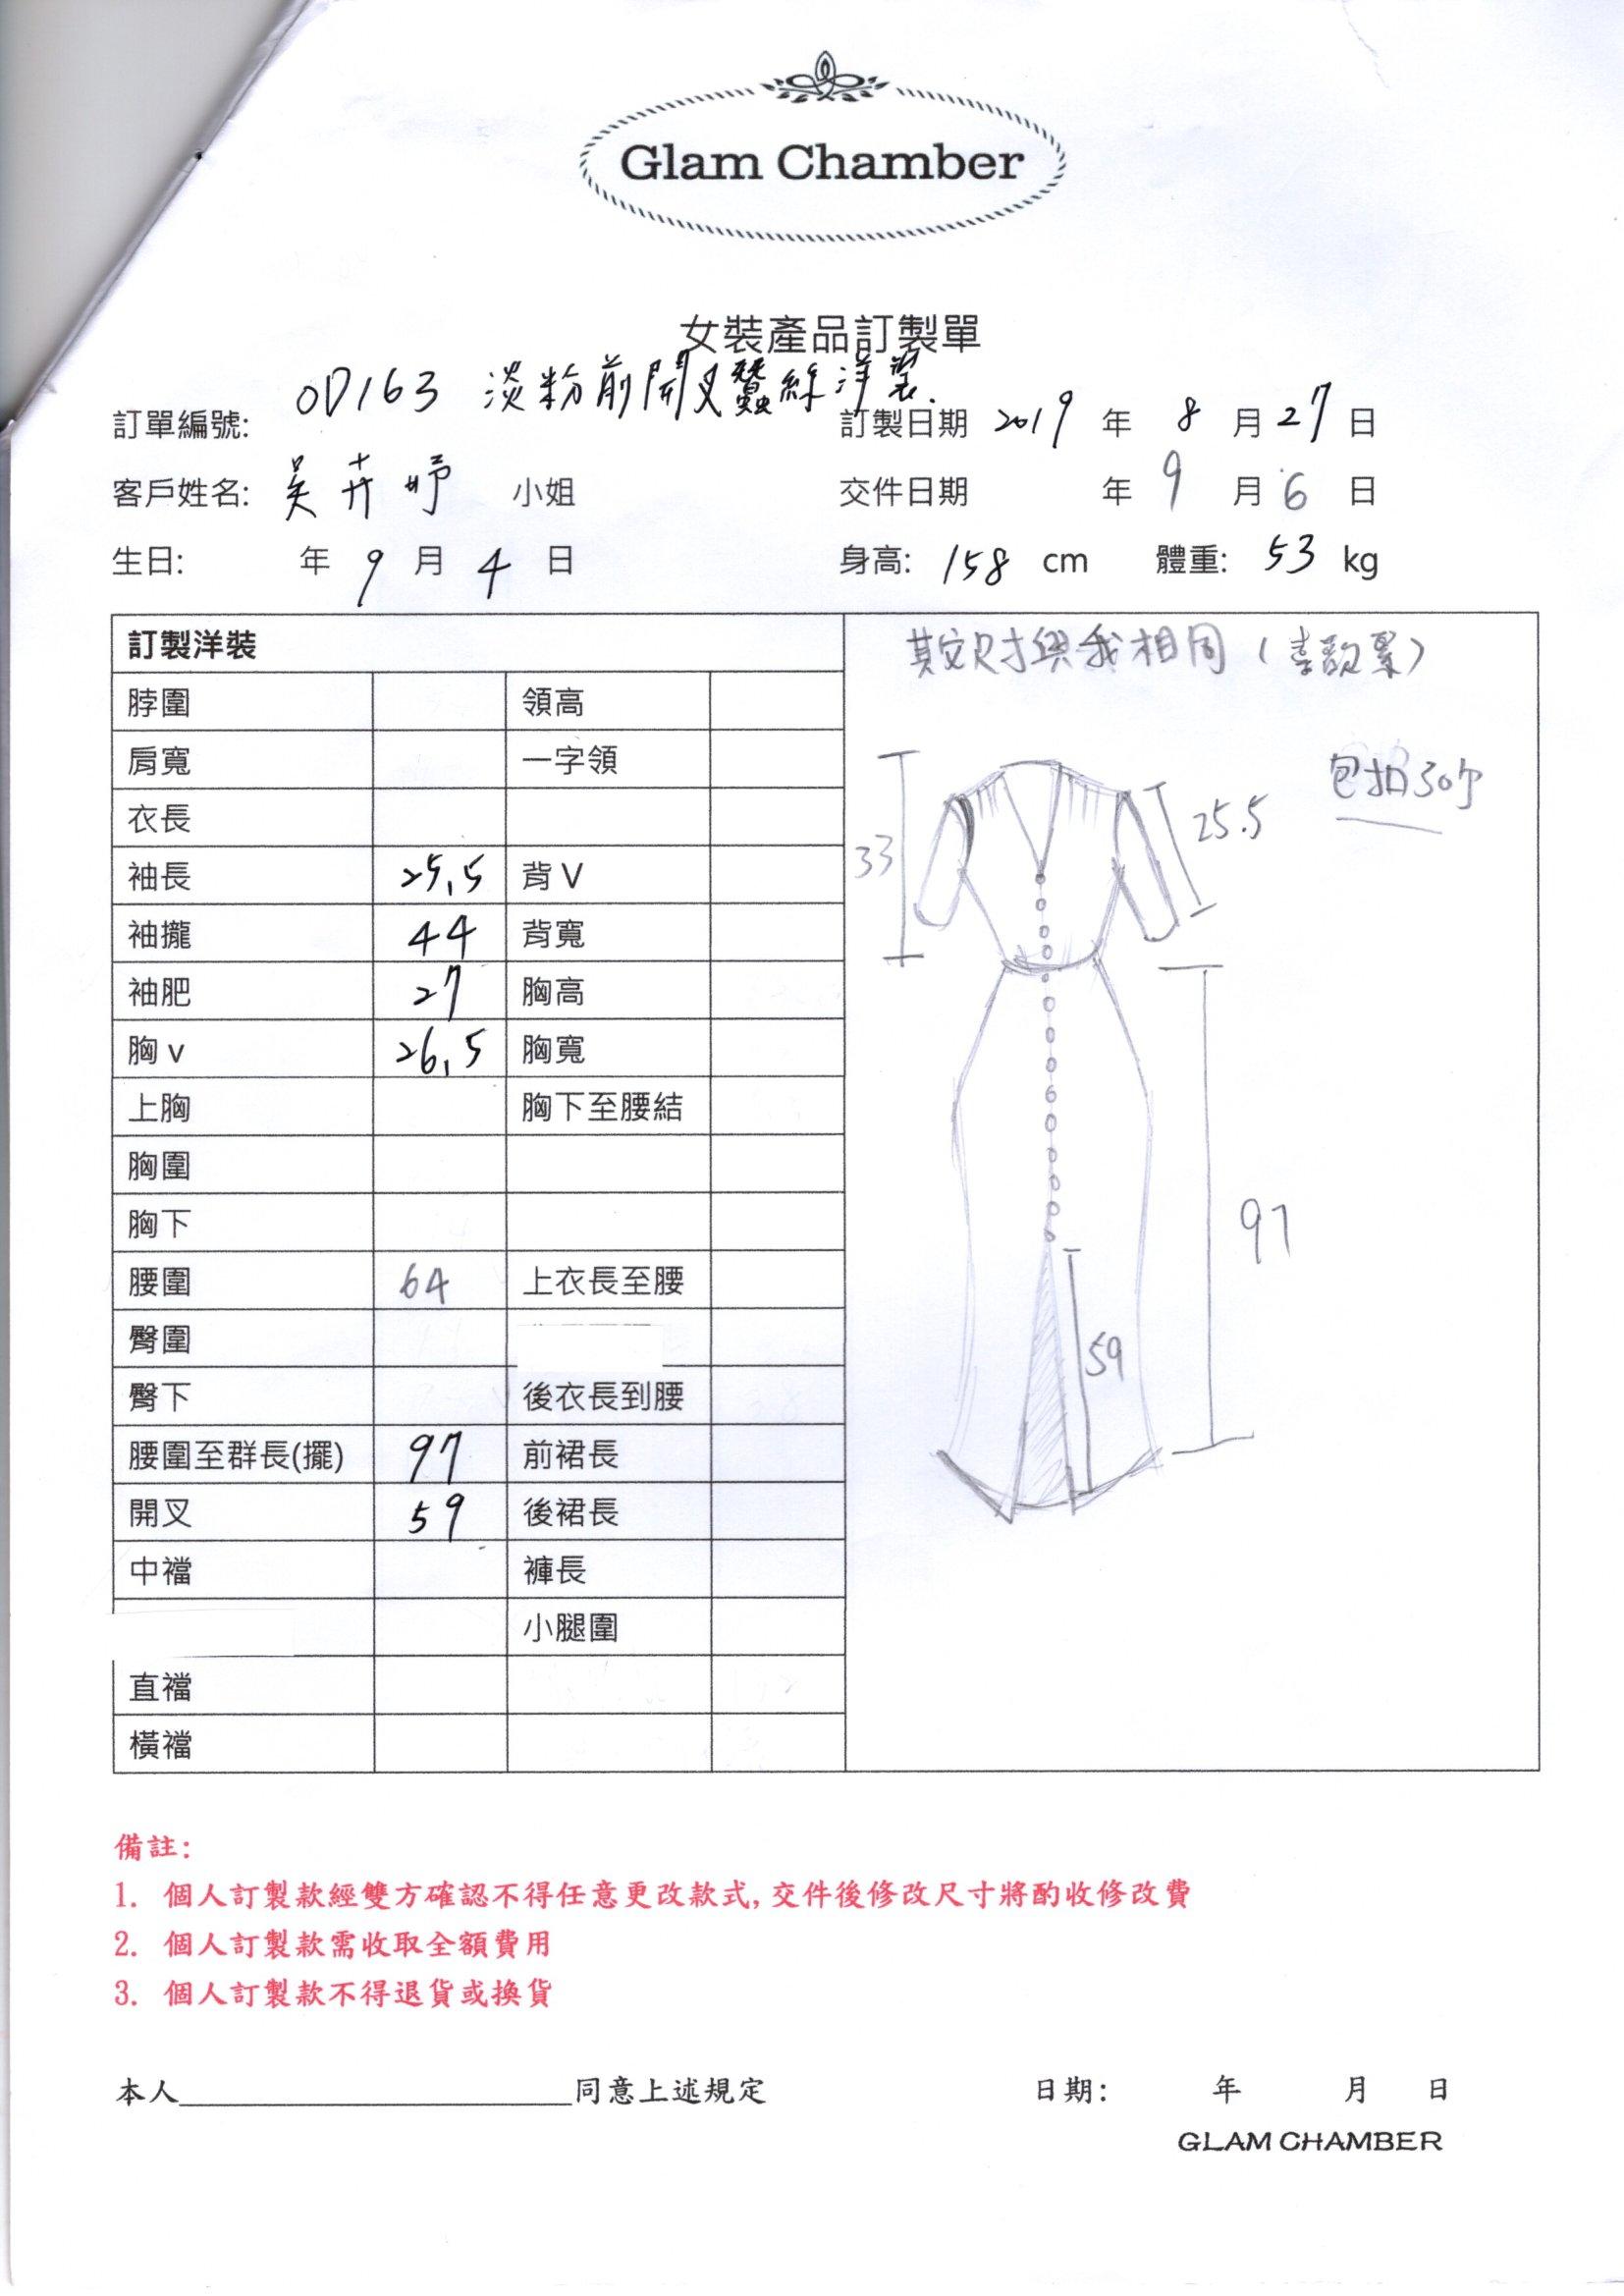 Glam Chamber
女裝產品訂製單
訂單編號: OD163 淡粉前開叉蠶絲洋裝. 訂製日期 2019 年 8 月 27 日
客戶姓名: 吳卉妤 小姐 交件日期 年 9 月 6 日
生日: 年 9 月 4 日 身高: 158 cm 體重: 53 kg
訂製洋裝
脖圍 領高
肩寬 一字領
衣長
袖長 25.5 背V
袖攏 44 背寬
袖肥 27 胸高
胸v 26.5 胸寬
上胸 胸下至腰結
胸圍
胸下
腰圍 64 上衣長至腰
臀圍
臀下 後衣長到腰
腰圍至群長(擺) 97 前裙長
開叉 59 後裙長
中襠 褲長
小腿圍
直襠
橫襠
尺寸與我相同
包扣30个
33
25.5
97
59
備註:
1. 個人訂製款經雙方確認不得任意更改款式,交件後修改尺寸將酌收修改費
2. 個人訂製款需收取全額費用
3. 個人訂製款不得退貨或換貨
本人 同意上述規定 日期: 年 月 日
GLAM CHAMBER